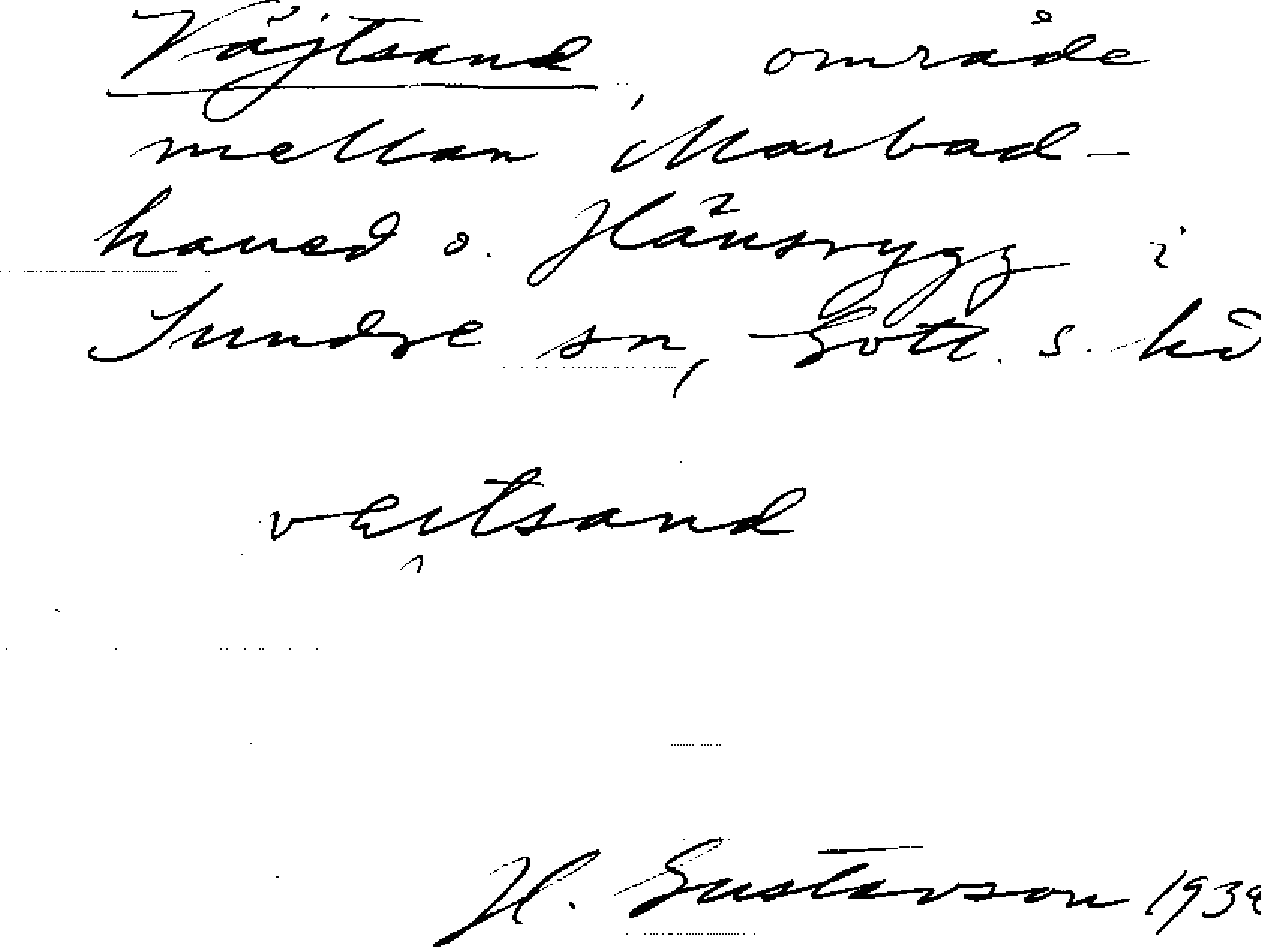 Väjtsand, område
mellan Marbad-
haued o. Hänsrygg i
Sundre sn, Gotl. s. hd
vęi̯tsand
H. Gustavson 193